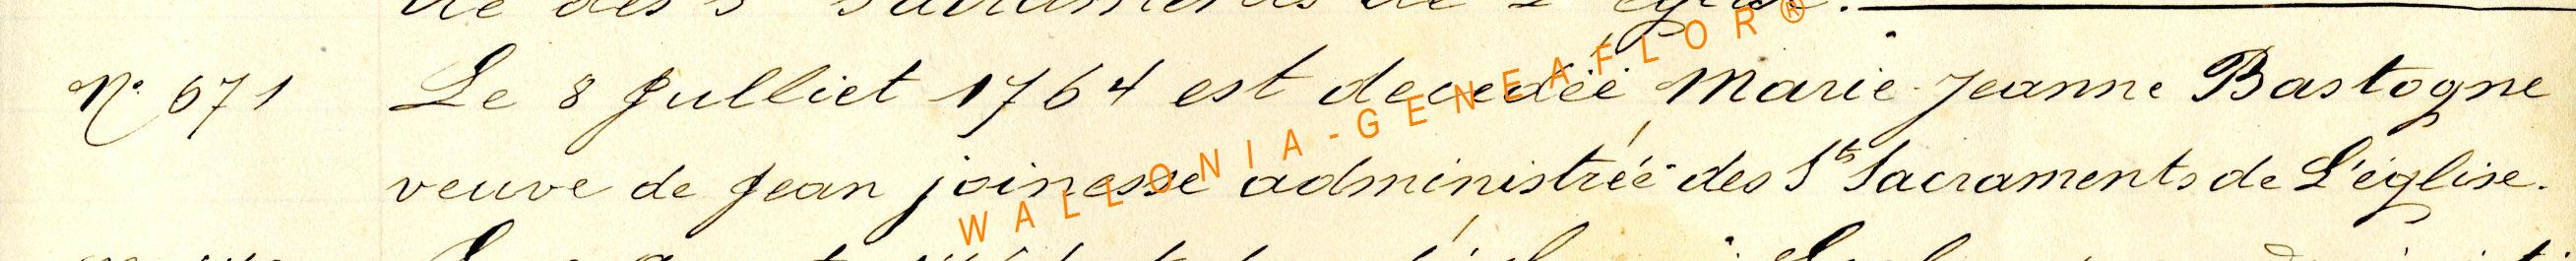 des Sacrements de l'église.
N° 671 Le 8 Julliet 1764 est decedéé Marie-Jeanne Bastogne
veuve de Jean joinesse administréé des Sts Sacraments de L'église.
WALLONIA-GENEAFLOR®